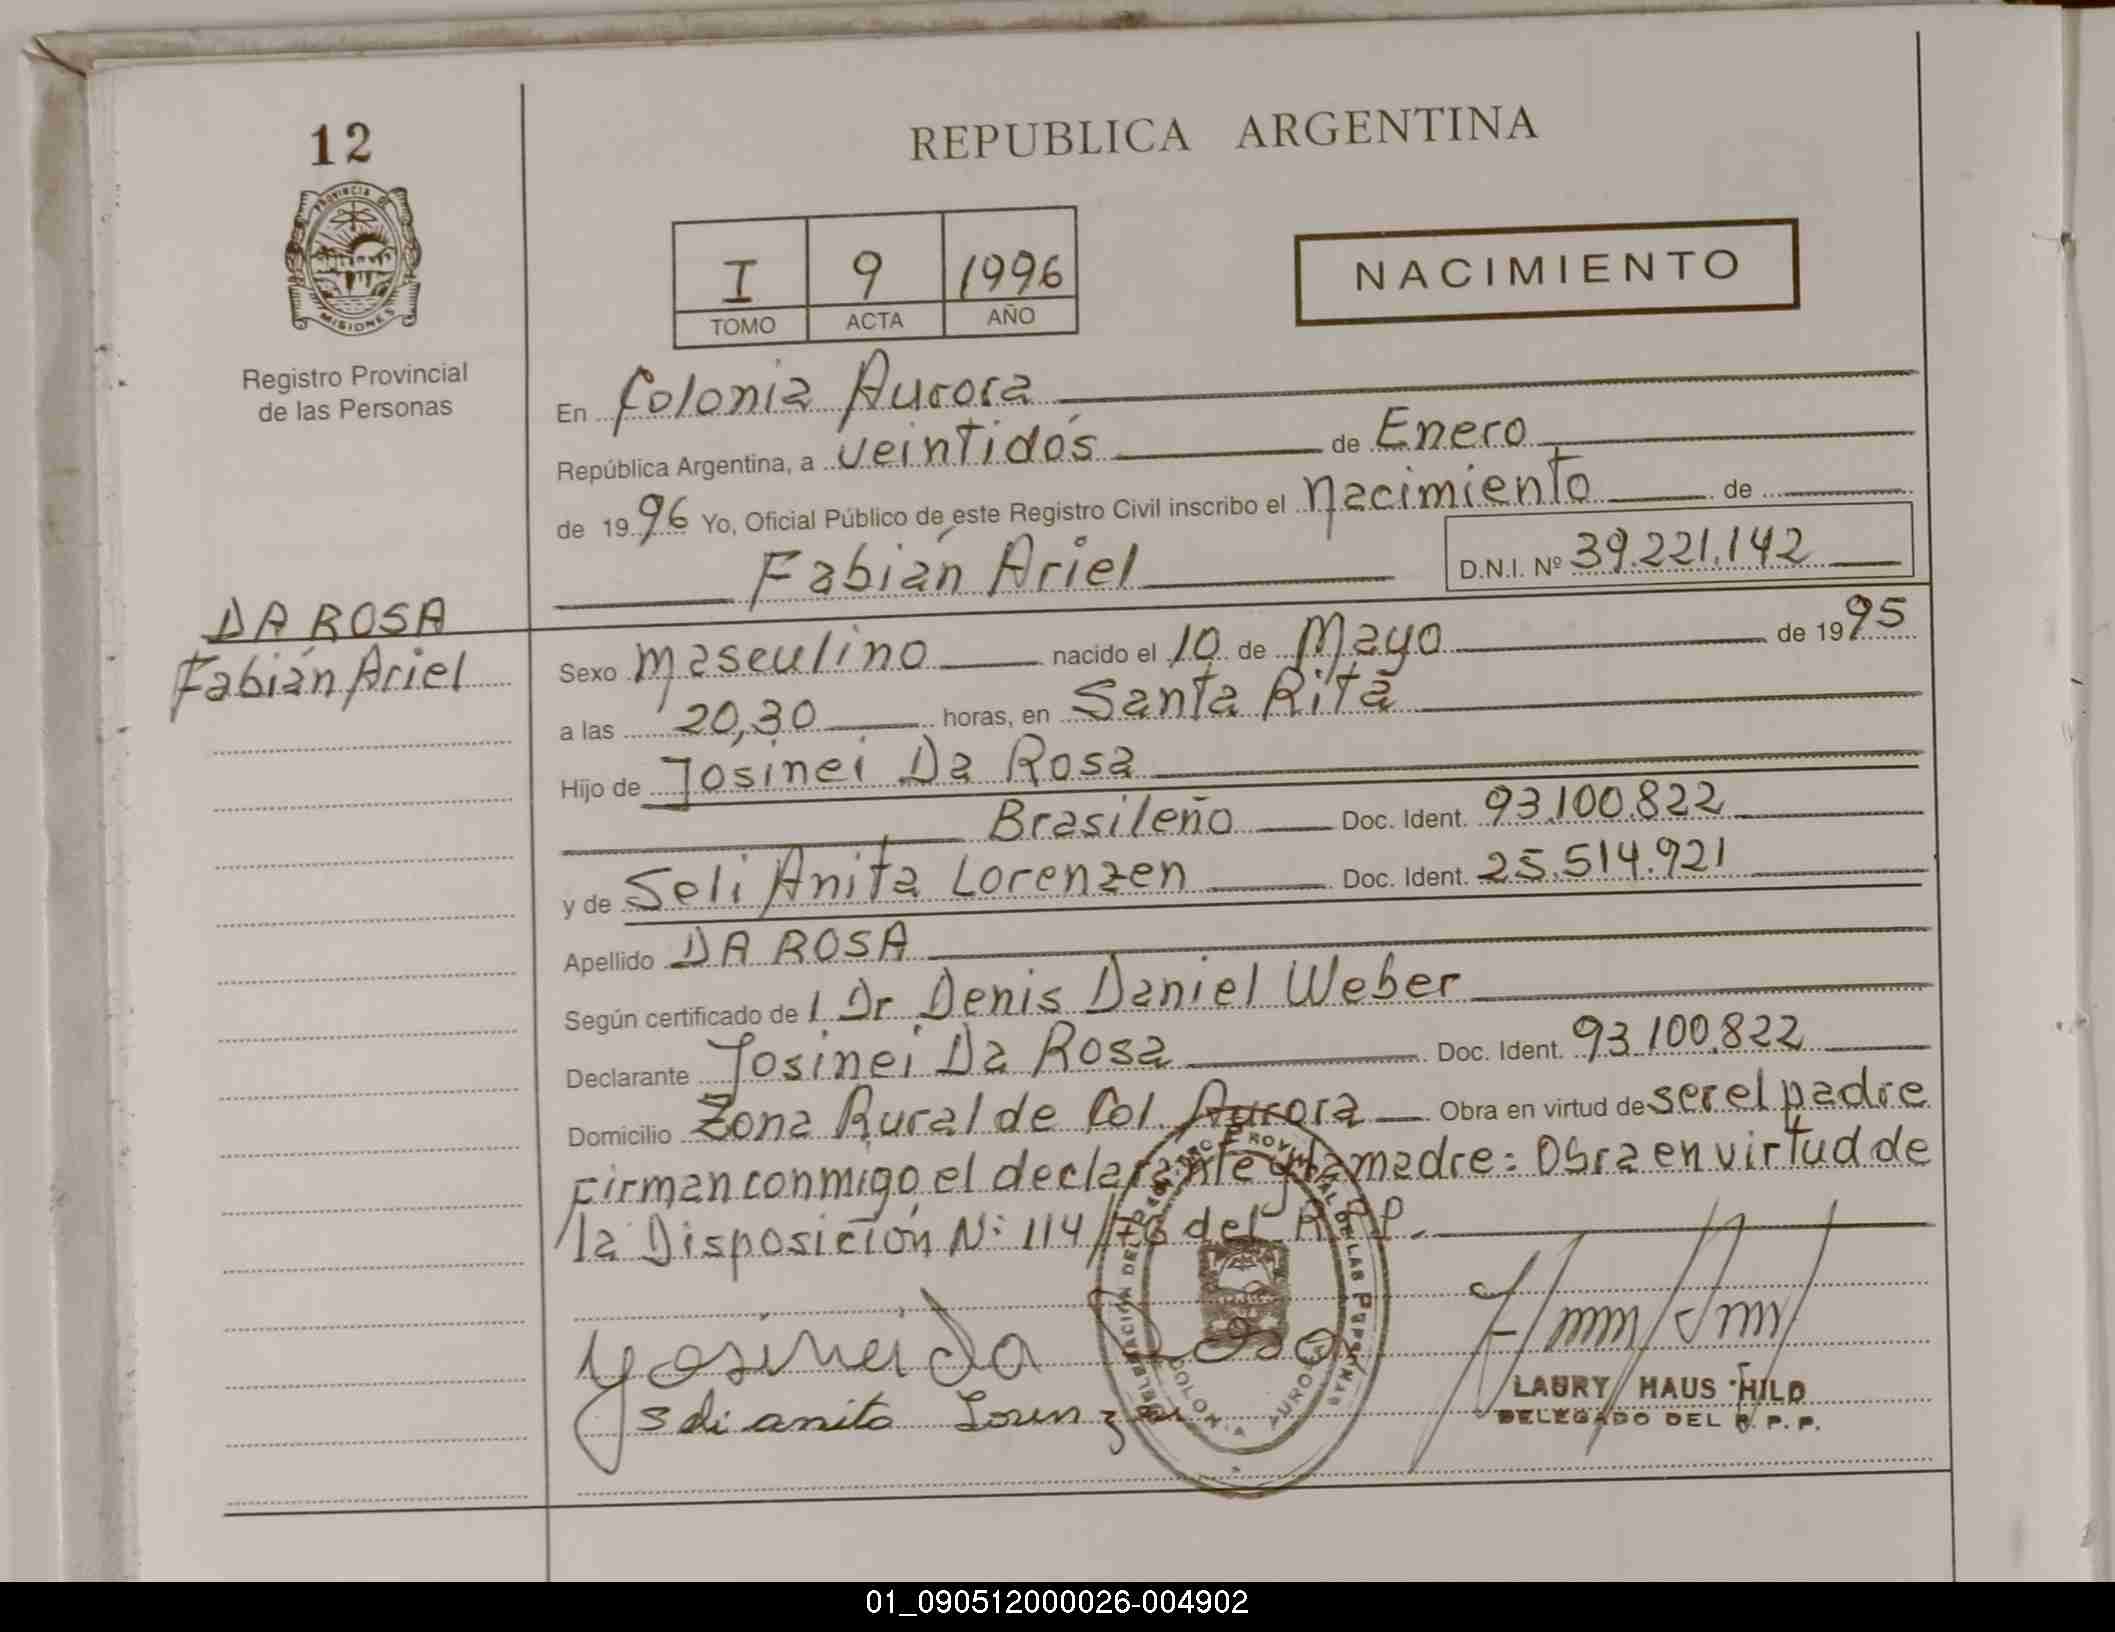 12
REPUBLICA ARGENTINA
PROVINCIA DE
MISIONES
Registro Provincial
de las Personas
I 9 1996
TOMO ACTA AÑO
NACIMIENTO
En Colonia Aurora
República Argentina, a veintidós de Enero
de 1996 Yo, Oficial Público de este Registro Civil inscribo el Nacimiento de
Fabián Ariel D.N.I. Nº 39.221.142
DA ROSA
Fabián Ariel
Sexo Masculino nacido el 10 de Mayo de 1995
a las 20,30 horas, en Santa Rita
Hijo de Josinei Da Rosa
Brasileño Doc. Ident. 93.100.822
y de Seli Anita Lorenzen Doc. Ident. 25.514.921
Apellido DA ROSA
Según certificado de l Dr Denis Daniel Weber
Declarante Josinei Da Rosa Doc. Ident. 93.100.822
Domicilio Zona Rural de Col. Aurora Obra en virtud de ser el padre
Firman conmigo, el declarante y la madre: Obra en virtud de
la Disposición Nº 114/76 del R.P.P.
DELEGACIÓN DEL REGISTRO PROVINCIAL DE LAS PERSONAS
COLONIA AURORA
Yosinei da Rosa
Seli anita Lorenzen
LAURY HAUS HILD
DELEGADO DEL R.P.P.
01_090512000026-004902